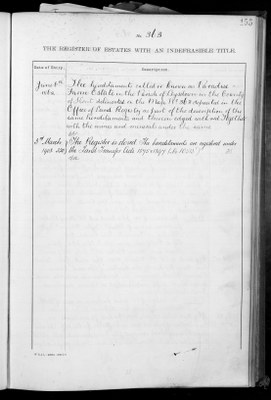 No 363
THE REGISTER OF ESTATES WITH AN INDEFEASIBLE TITLE.
Date of Entry.
Description.
June 8th
The hereditaments called or known as Paradise
Farm Estate in the Parish of Leysdown in the County
of Kent delineated on the Map No 363 deposited in the
Office of Land Registry as part of the description of the
same hereditaments and thereon edged with red Together
with the mines and minerals under the same
3rd March
1903
The Register is closed The hereditaments are registered under
the Land Transfer Acts 1875 & 1897